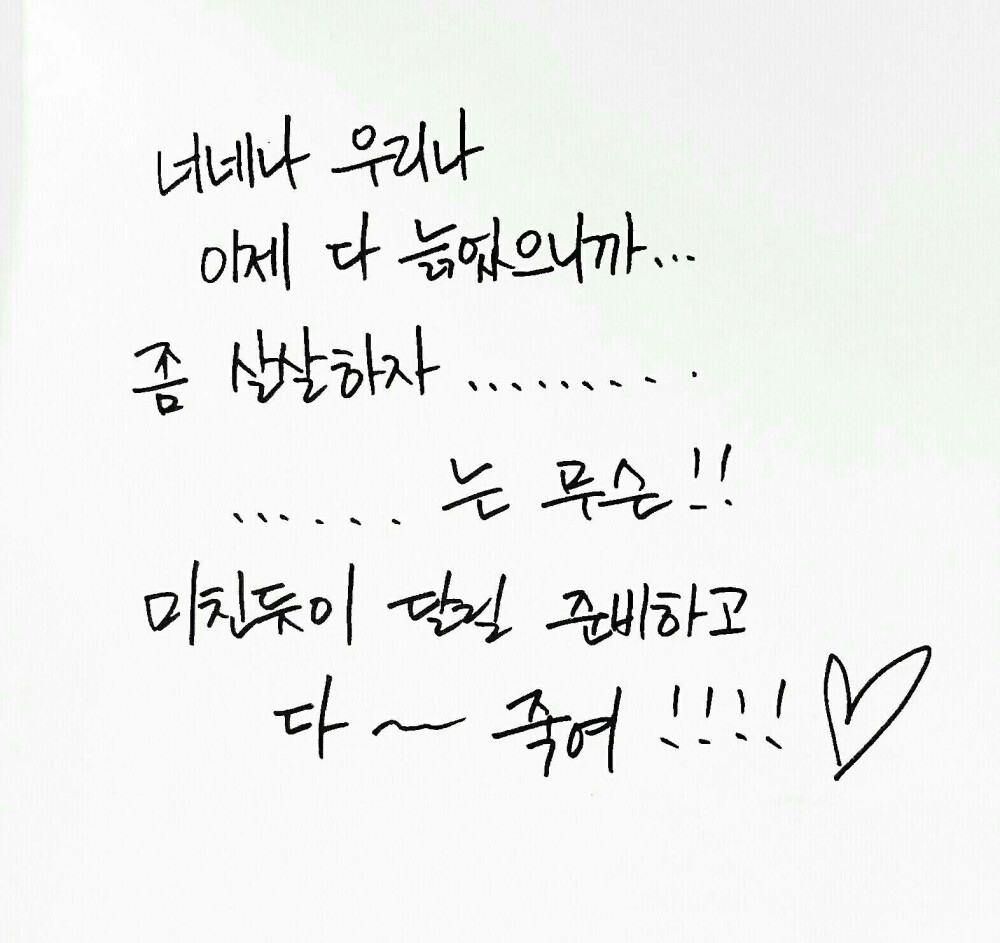 너네나 우리나
이제 다 늙었으니까...
좀 살살하자 .........
...... 는 무슨!!
미친듯이 달릴 준비하고
다 ~ 죽여 !!!! ♡